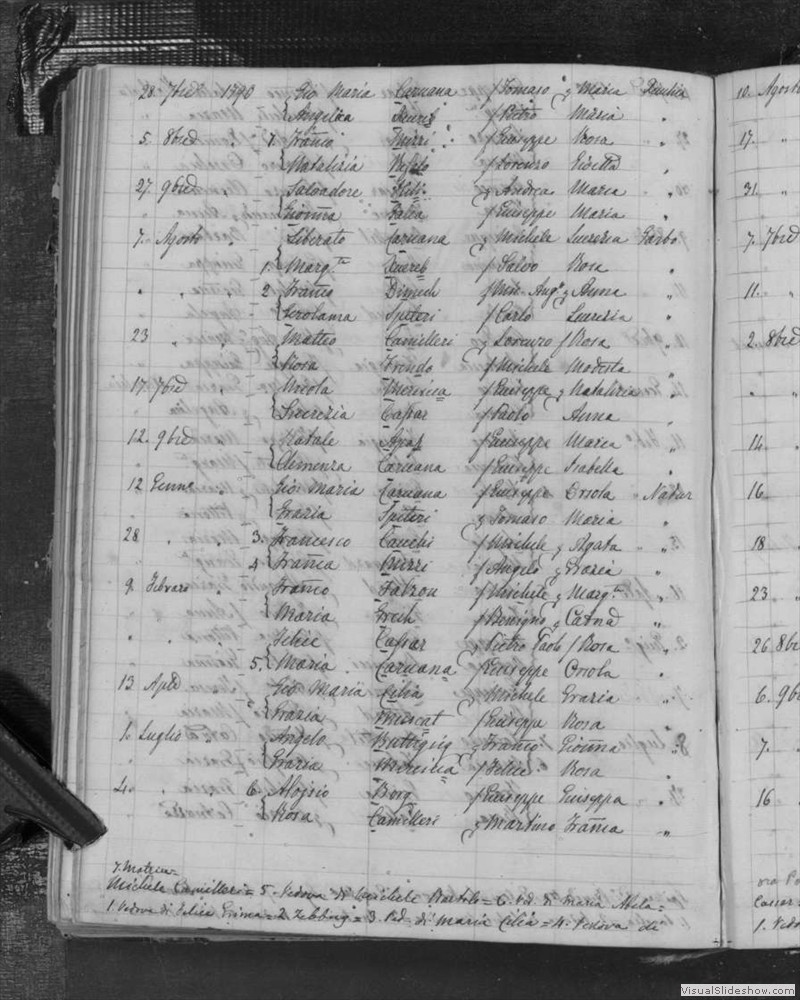 28. 7bre 1790 Gio Maria Caruana f Tomaso & Maria
Angelica f Pietro Maria "
5. 8bre " 7. Franco Mizzi f Giuseppe Rosa "
Natalizia f Lorenzo "
27. 9bre " Salvadore & Andrea Maria "
Gionna Falca f Giuseppe Maria "
7. Agosto " Liberato Caruana & Michele Lucrezia Garbo
1. Margta Xuereb f Salvo Rosa "
" " 2 Franco Dimech f Mic. Ango & Anna "
Gerolama Speteri f Carlo Lucrezia "
23 " Matteo Camilleri & Lorenzo f Rosa "
Rosa Frendo f Michele Modesta "
17. 7bre " Nicola Mercieca f Giuseppe & Natalizia "
Lucrezia Cassar f Paolo Anna "
12. 9bre Natale Apap f Giuseppe Maria "
Clemenza Caruana f Giuseppe Isabella "
12 Genne " Gio Maria Caruana f Giuseppe Orsola " Natur
Grazia Speteri & Tomaso Maria "
28 " " 3. Francesco Cauchi f Michele & Agata "
4 Franca Mizzi f Angelo & Grazia "
9. Febraro " Franco Falzon f Michele & Margta "
Maria Grech f Benigno & Catna "
" " Felice Cassar & Pietro Paolo f Rosa "
5. Maria Caruana f Giuseppe Orsola "
13 Aple " Gio Maria Cilia & Michele Grazia "
Grazia Muscat f Giuseppe Rosa "
1. Luglio " Angelo Buttigieg & Franco Gionna "
Grazia Mercieca f Felice Rosa "
4. " 6. Aloisio Borg f Giuseppe Giuseppa "
Rosa Camilleri & Martino Franca "
7. Matrice=
Michele Camilleri = 5. Vedova di Michele Bartolo = 6. Ved. di Maria
1. Vedova di Felice Grima = 2. Zebbug = 3. Ved. di Maria Cilia = 4. Vedova di
10. Agosto
17. "
31. "
7. 7bre
11. "
2. 8bre
" "
14. "
16. "
18 "
23 "
26 8bre
6. 9b
7. "
16 "
Cassar
1. Vedo
VisualSlideshow.com